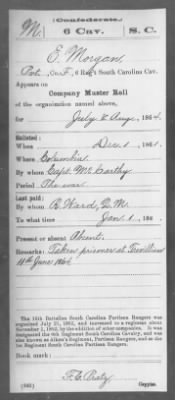 (Confederate.)
M. 6 Cav. S. C.
E. Morgan
Pvt., Co. F, 6 Reg't South Carolina Cav.
Appears on
Company Muster Roll
of the organization named above,
for July & Aug, 1864.
Enlisted:
When Dec 1, 1861.
Where Columbia
By whom Capt. McCarthy
Period The war
Last paid:
By whom R. Ward, Q. M.
To what time Jan 1, 186 .
Present or absent Absent.
Remarks: Taken prisoner at Trevillian
11th June 1864
The 16th Battalion South Carolina Partisan Rangers was
organized July 21, 1862, and increased to a regiment about
November 1, 1862, by the addition of other companies. It was
designated the 6th Regiment South Carolina Cavalry, and was
also known as Aiken's Regiment, Partisan Rangers, and as the
1st Regiment South Carolina Partisan Rangers.
Book mark:
(642) Copyist.